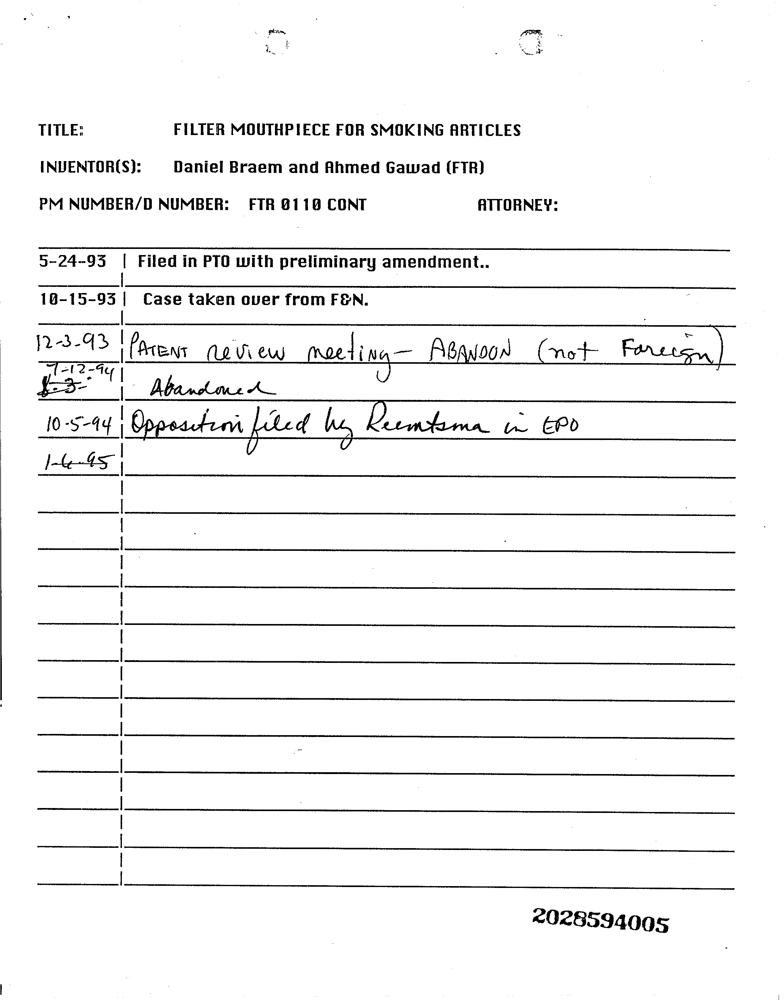 TITLE: FILTER MOUTHPIECE FOR SMOKING ARTICLES
INVENTOR(S): Daniel Braem and Ahmed Gawad (FTR)
PM NUMBER/D NUMBER: FTR 0110 CONT ATTORNEY:
5-24-93 | Filed in PTO with preliminary amendment..
10-15-93 | Case taken over from F&N.
12-3-93 | PATENT review meeting - ABANDON (not Foreign)
7-12-94 | Abandoned
10-5-94 | Opposition filed by Reemtsma in EPO
1-4-95
2028594005